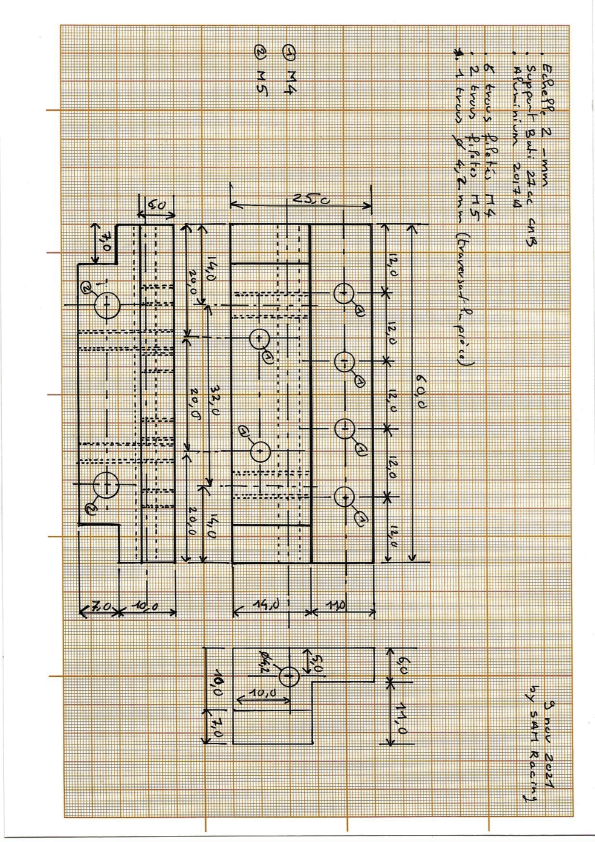 . Echelle 2 - mm
. Support Bati 27cc CNB
. Aluminium 2017A
. 6 trous filetés M4
. 2 trous filetés M5
. 1 trous ø 4,2 mm (traversant la pièce)
① M4
② M5
9 nov 2021
by SAM Racing
60,0
12,0 12,0 12,0 12,0 12,0
25,0
11,0
14,0
① ① ① ①
① ①
14,0 32,0 14,0
20,0 20,0 20,0
6,0
10,0
7,0
7,0
② ②
6,0 11,0
5,0
ø4,2
10,0
10,0 7,0